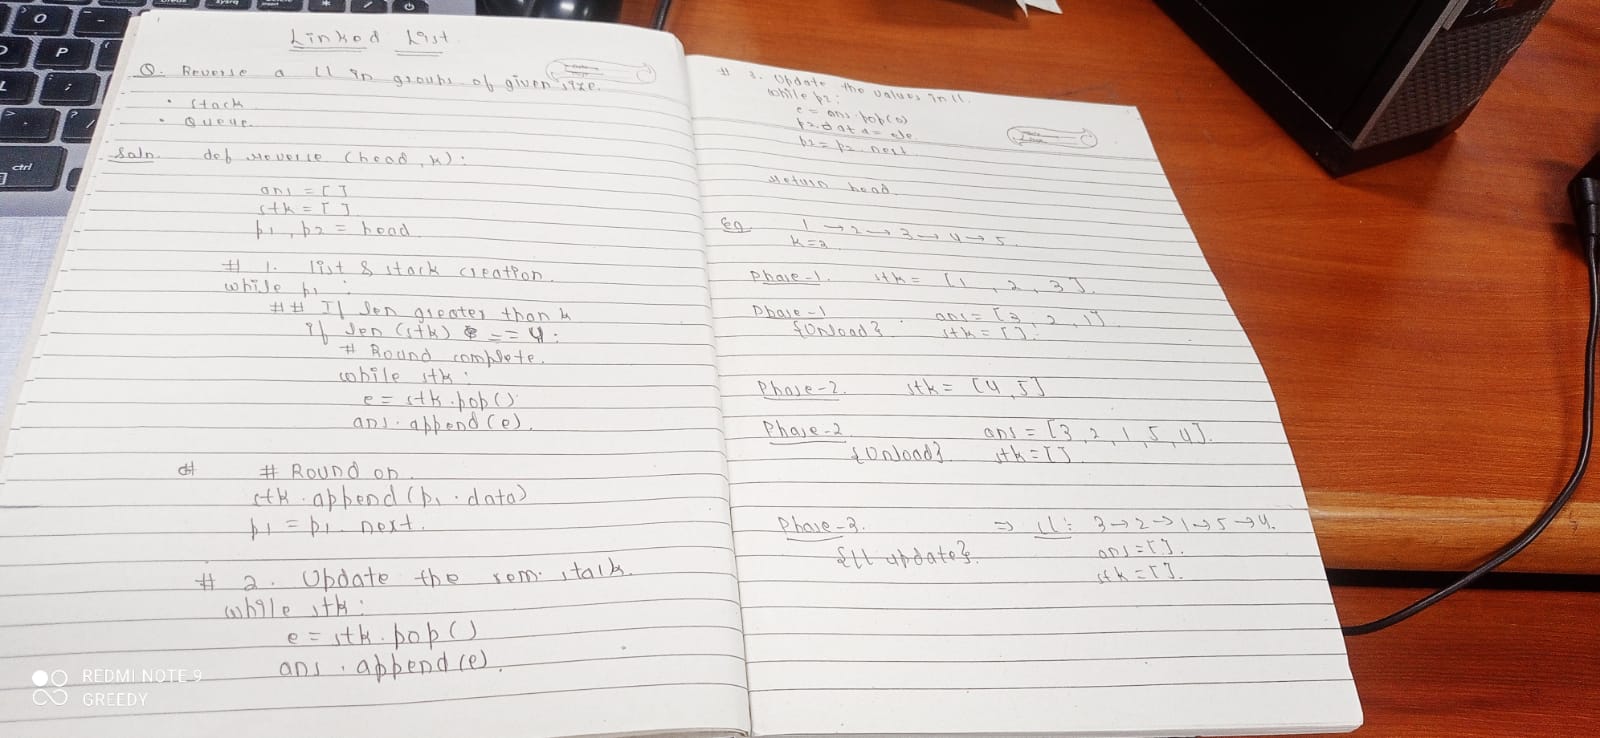 Linked List
Q. Reverse a ll in groups of given size.
• Stack
• Queue
Soln. def reverse (head, k):
ans = [ ]
stk = [ ]
p1, p2 = head
# 1. list & stack creation
while p1 :
## If len greater than k
if len (stk) == 4:
# Round complete.
while stk :
e = stk.pop()
ans.append(e).
# Round on
stk.append(p1.data)
p1 = p1.next.
# 2. Update the rem. stalk.
while stk :
e = stk.pop()
ans.append(e).
# 3. Update the values in ll.
while p2 :
e = ans.pop(0)
p2.data = ele
p2 = p2.next
return head.
Eg. 1 → 2 → 3 → 4 → 5.
k=3
Phase-1. stk = [1, 2, 3].
Phase-1 ans = [3, 2, 1]
{Unload} stk = [ ].
Phase-2. stk = [4, 5]
Phase-2 ans = [3, 2, 1, 5, 4].
{Unload}. stk = [ ].
Phase-3. ⇒ LL: 3→2→1→5→4.
{ll update}. ans = [ ].
stk = [ ].
REDMI NOTE 9
GREEDY
O
P
L
;
?
/
ctrl